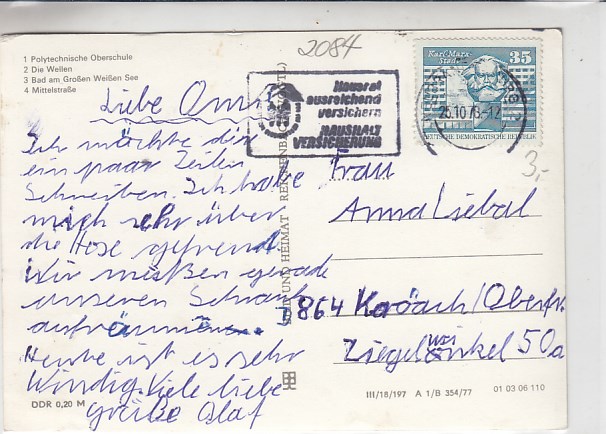 2084
1 Polytechnische Oberschule
2 Die Wellen
3 Bad am Großen Weißen See
4 Mittelstraße
Hausrat
ausreichend
versichern
HAUSHALT
VERSICHERUNG
Karl-Marx-
Stadt
35
DEUTSCHE DEMOKRATISCHE REPUBLIK
25.10.78-12
3,-
Liebe Oma!
Ich möchte dir
ein paar Zeilen
Schreiben. Ich habe
mich sehr über
die Hose gefreut.
Wir mißen gerade
unseren Schrank
aufräumen.
Heute ist es sehr
Windig. Viele liebe
Grüße Olaf
Frau
Anna Liebal
8864 Kronach/Oberfr.
Ziegelwinkel 50a
BILD UND HEIMAT · REICHENBACH (VOGTL)
DDR 0,20 M
III/18/197 A 1/B 354/77
01 03 06 110